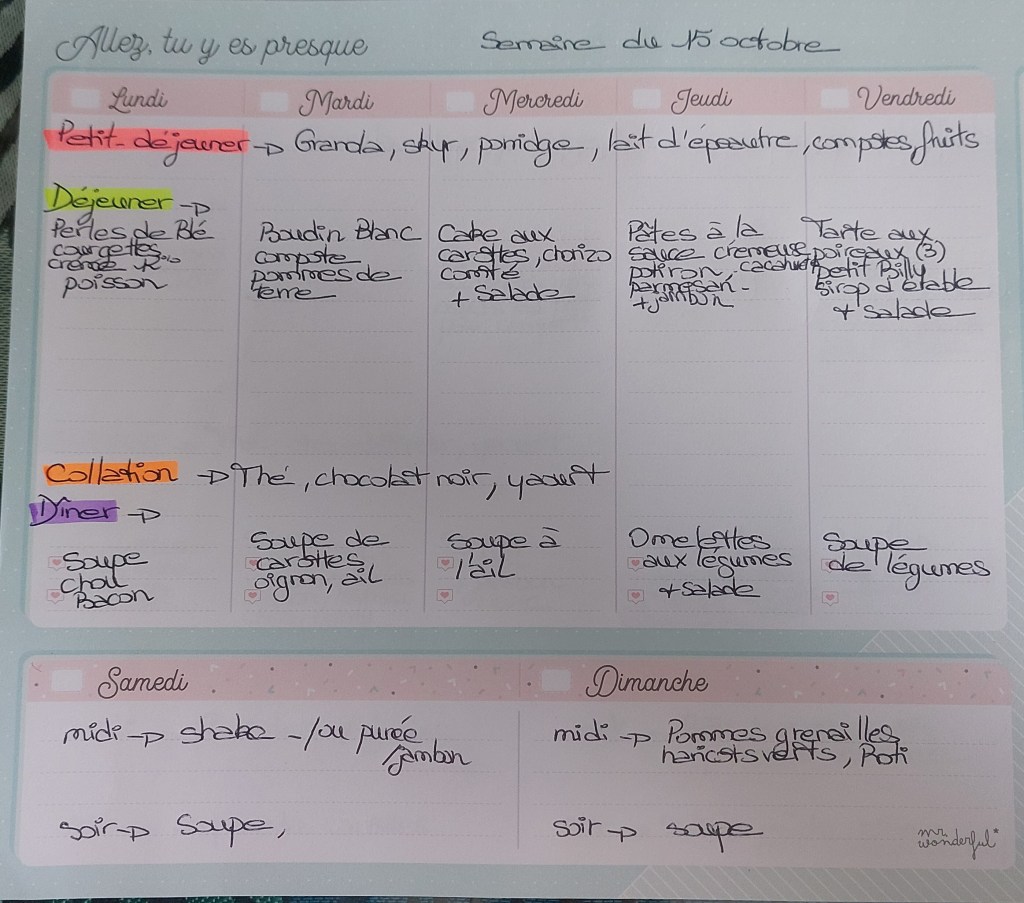 Allez, tu y es presque
Semaine du 15 octobre
Lundi
Mardi
Mercredi
Jeudi
Vendredi
Petit-déjeuner → Granola, skyr, porridge, lait d'épeautre, compotes, fruits
Déjeuner →
Perles de Blé
courgettes
crème
poisson
Boudin Blanc
compote
pommes de
terre
Cake aux
carottes, chorizo
comté
+ Salade
Pâtes à la
sauce crémeuse
potiron, cacahuète
parmesan
+ jambon
Tarte aux
poireaux (3)
Petit Billy
Sirop d'érable
+ Salade
Collation → Thé, chocolat noir, yaourt
Dîner →
Soupe
chou
Bacon
Soupe de
carottes
oignon, ail
Soupe à
l'ail
Omelettes
aux légumes
+ salade
Soupe
de légumes
Samedi
midi → shake -/ou purée
/jambon
soir → Soupe,
Dimanche
midi → Pommes grenailles
haricots verts, Roti
soir → soupe
mr.
wonderful*